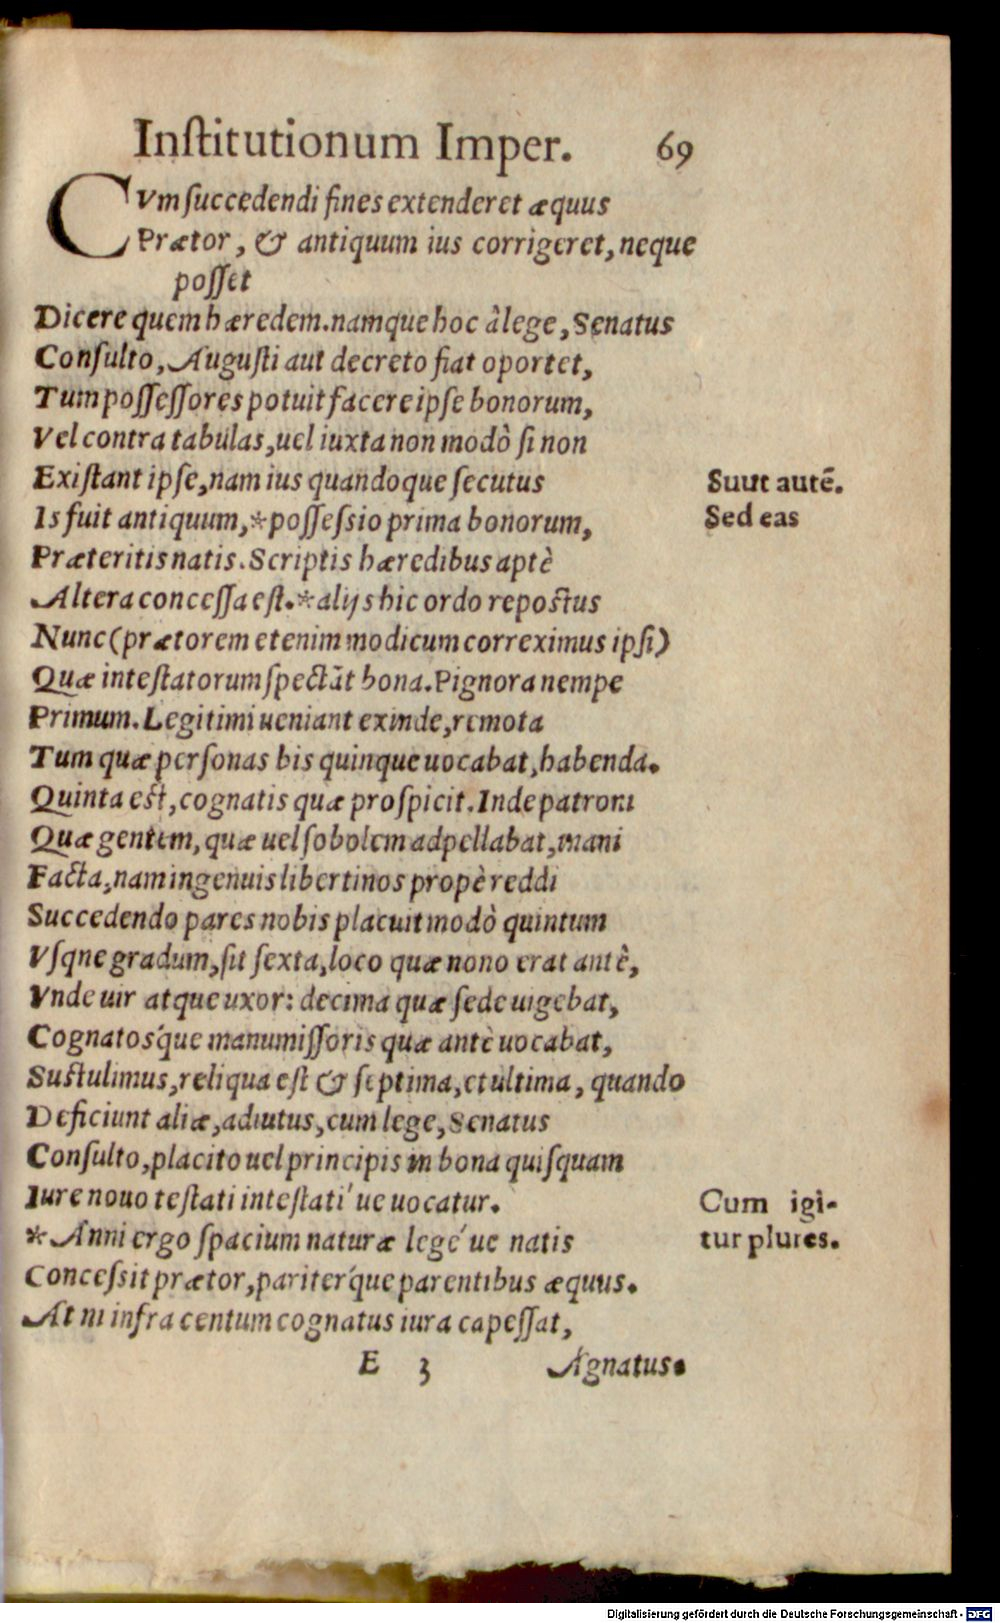 Inſtitutionum Imper. 69
CVm ſuccedendi fines extenderet æquus
Prætor, & antiquum ius corrigeret, neque
poſſet
Dicere quem hæredem. namque hoc à lege, Senatus
Conſulto, Auguſti aut decreto fiat oportet,
Tum poſſeſſores potuit facere ipſe bonorum,
Vel contra tabulas, uel iuxta non modò ſi non
Exiſtant ipſe, nam ius quandoque ſecutus
Suut autẽ.
Is fuit antiquum, *poſſeſsio prima bonorum,
Sed eas
Præteritis natis. Scriptis hæredibus aptè
Altera conceſſa eſt. *alijs hic ordo repoſtus
Nunc (prætorem etenim modicum correximus ipſi)
Quæ inteſtatorum ſpectãt bona. Pignora nempe
Primum. Legitimi ueniant exinde, remota
Tum quæ perſonas bis quinque uocabat, habenda.
Quinta eſt, cognatis quæ proſpicit. Inde patroni
Quæ gentem, quæ uel ſobolem adpellabat, mani
Facta, nam ingenuis libertinos propè reddi
Succedendo pares nobis placuit modò quintum
Vſqne gradum, ſit ſexta, loco quæ nono erat antè,
Vnde uir atque uxor: decima quæ ſede uigebat,
Cognatos´que manumiſſoris quæ antè uocabat,
Suſtulimus, reliqua eſt & ſeptima, et ultima, quando
Deficiunt aliæ, adiutus, cum lege, Senatus
Conſulto, placito uel principis in bona quiſquam
Iure nouo teſtati inteſtati´ue uocatur.
Cum igi-
*Anni ergo ſpacium naturæ lege´ue natis
tur plures.
Conceſsit prætor, pariter´que parentibus æquus.
At ni infra centum cognatus iura capeſſat,
E 3 Agnatus.
Digitalisierung gefördert durch die Deutsche Forschungsgemeinschaft - DFG